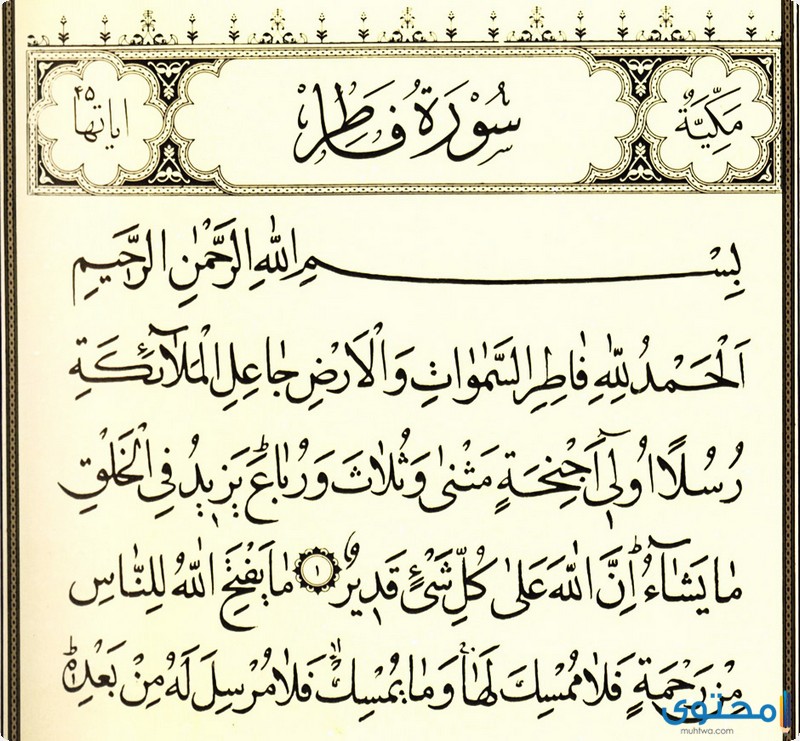 مَكِّيَّةٌ
سُورَةُ فَاطِرٍ
اياتها ٤٥
بِسْمِ اللّٰهِ الرَّحْمٰنِ الرَّحِيمِ
اَلْحَمْدُ لِلّٰهِ فَاطِرِ السَّمٰوَاتِ وَالْاَرْضِ جَاعِلِ الْمَلٰٓئِكَةِ
رُسُلًا اُولٖٓى اَجْنِحَةٍ مَثْنٰى وَثُلَاثَ وَرُبَاعَۜ يَزٖيدُ فِى الْخَلْقِ
مَا يَشَٓاءُۜ اِنَّ اللّٰهَ عَلٰى كُلِّ شَىْءٍ قَدٖيرٌ ١ مَا يَفْتَحِ اللّٰهُ لِلنَّاسِ
مِنْ رَحْمَةٍ فَلَا مُمْسِكَ لَهَاۚ وَمَا يُمْسِكْۙ فَلَا مُرْسِلَ لَهُ مِنْ بَعْدِهٖۜ
محتوى
muhtwa.com